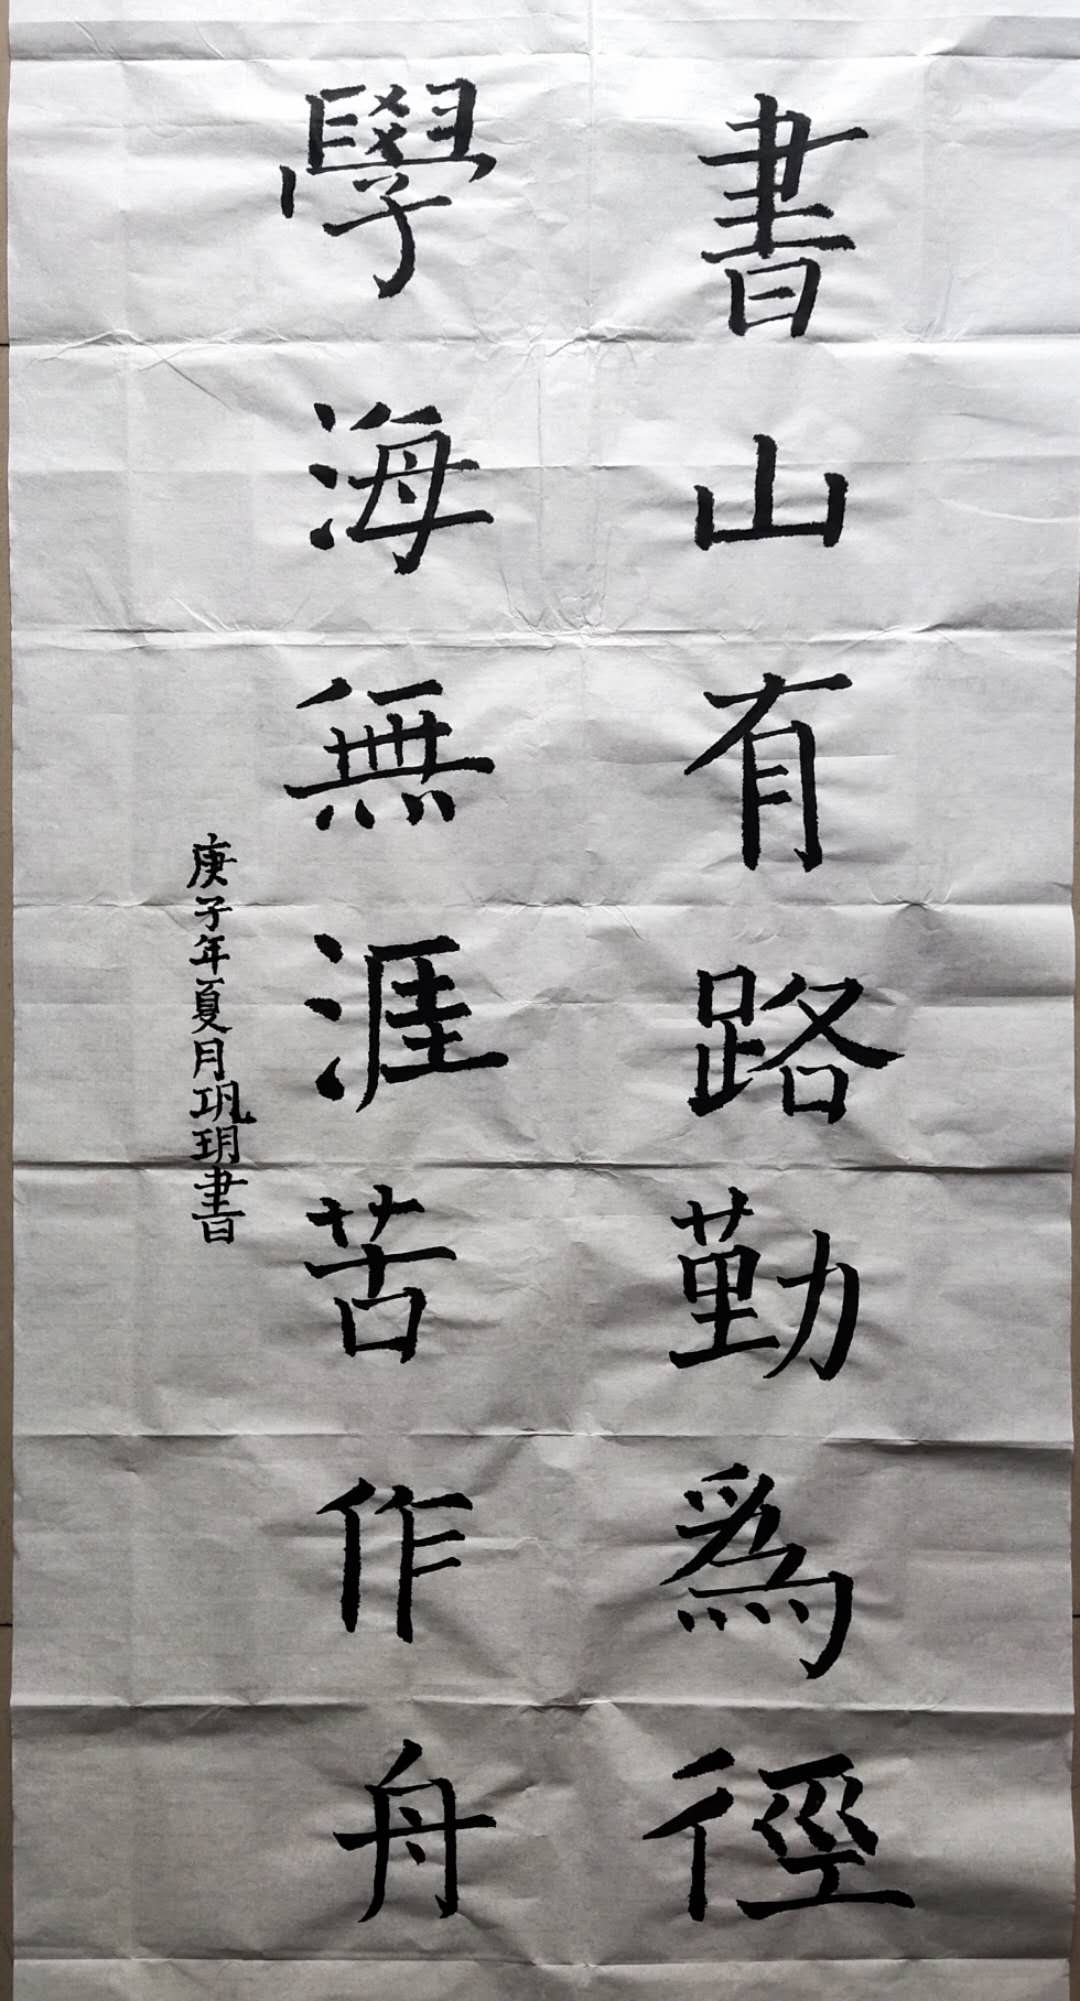 書山有路勤爲徑
學海無涯苦作舟
庚子年夏月珮玥書